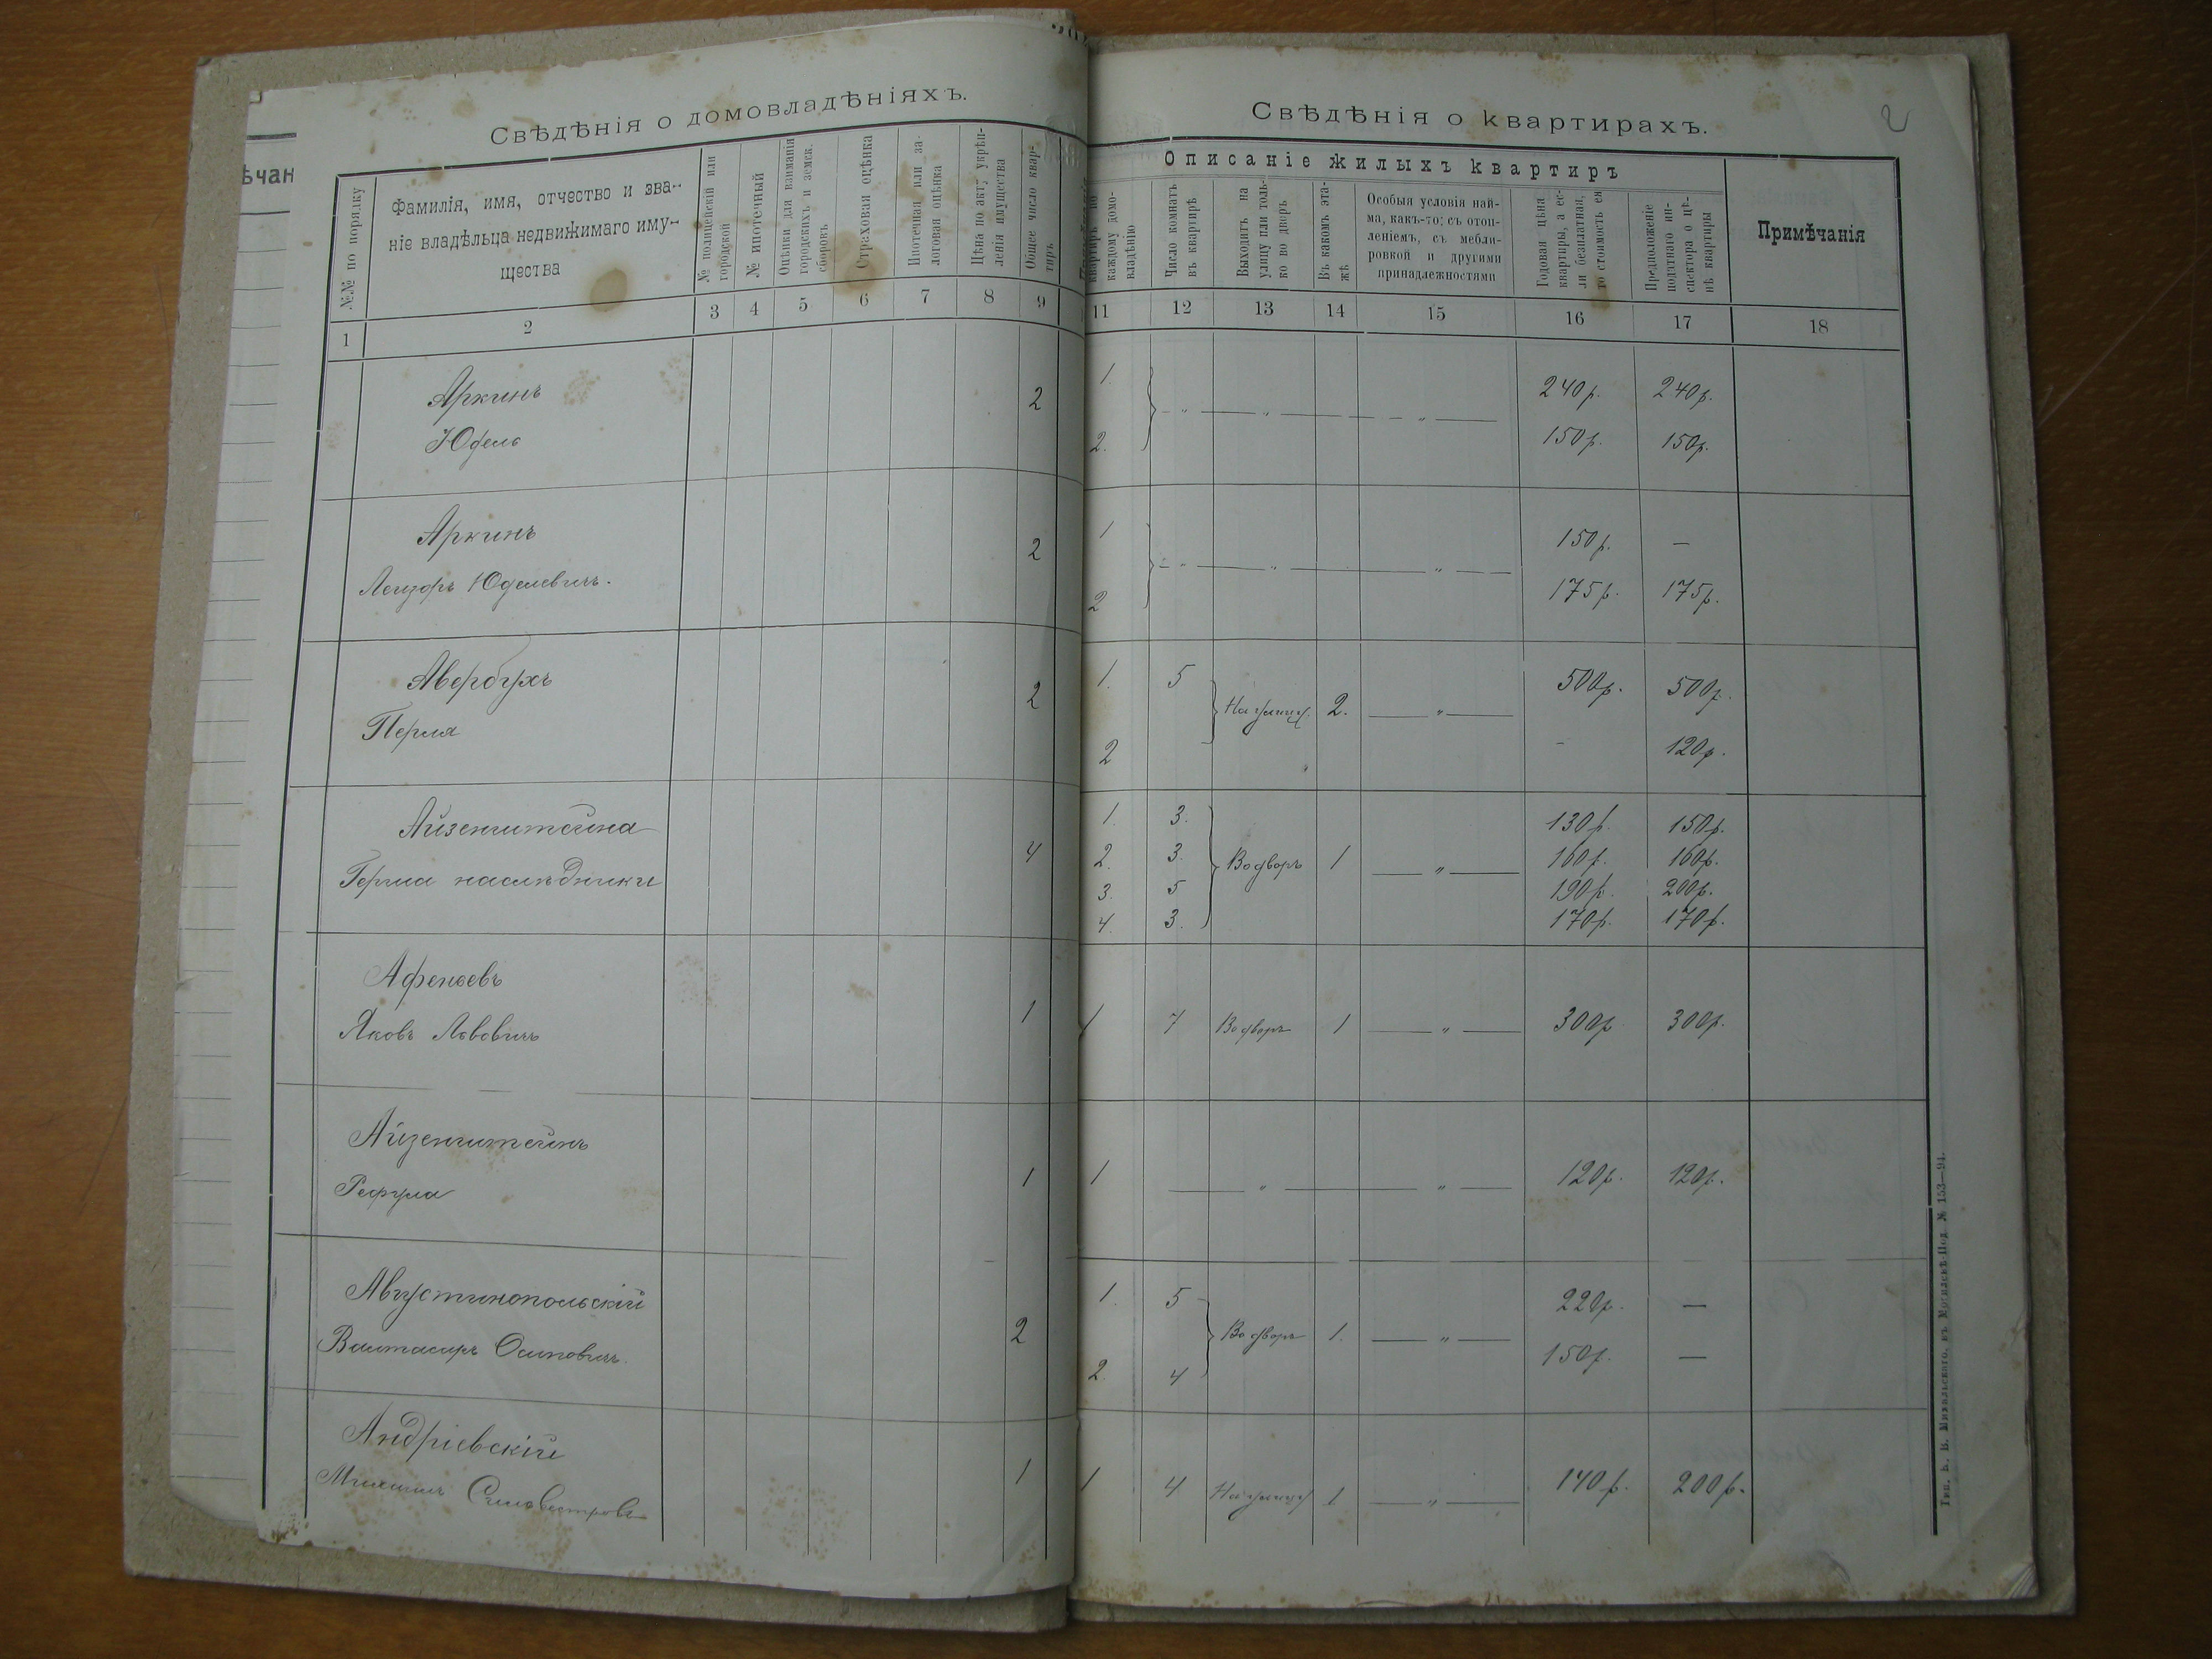 ѣчан
Свѣдѣнія о домовладѣніяхъ.
№№ по порядку
Фамилія, имя, отчество и зва-
ніе владѣльца недвижимаго иму-
щества
№ полицейскій или
городской
№ ипотечный
Оцѣнки для взиманія
городскихъ и земск.
сборовъ
Страховая оцѣнка
Ипотечная или за-
логовая оцѣнка
Цѣна по акт. укрѣп-
ленія имущества
Общее число квар-
тиръ
1 2 3 4 5 6 7 8 9
Аркинъ
Юдель
2
Аркинъ
Лейзоръ Юделевичъ.
2
Авербухъ
Перля
2
Айзенштейна
Герша наслѣдники
4
Афеньевъ
Яковъ Львовичъ
1
Айзенштейнъ
1
Августинопольскій
Валтасаръ Осиповичъ.
2
Андріевскій
Сильвестровъ
1
Свѣдѣнія о квартирахъ.
2
Описаніе жилыхъ квартиръ
квартиръ по
каждому домо-
владѣнію
Число комнатъ
въ квартирѣ
Выходитъ на
улицу или толь-
ко во дворъ
Въ какомъ эта-
жѣ
Особыя условія най-
ма, какъ-то: съ отоп-
леніемъ, съ мебли-
ровкой и другими
принадлежностями
Годовая цѣна
квартиры, а ес-
ли безплатная,
то стоимость ея
Предположеніе
податнаго ин-
спектора о цѣ-
нѣ квартиры
Примѣчанія
11 12 13 14 15 16 17 18
1. 240р. 240р.
2. — „ — „ — „ — 150р. 150р.
1 150р. —
2 — „ — „ — „ — 175р. 175р.
1. 5 На улицу. 2. — „ — 500р. 500р.
2 - 120р.
1. 3. 130р. 150р.
2. 3. Во дворъ 1 — „ — 160р. 160р.
3. 5 190р. 200р.
4. 3. 170р. 170р.
1 7 Во дворъ 1 — „ — 300р 300р.
1 — „ — „ — 120р. 120р.
1. 5 220р. —
Во дворъ 1. — „ —
2. 4 150р. —
1 4 На улицу 1 — „ — 140р. 200р.
Тип. Б. Михальского, въ Могилевѣ-Под. № 153—94.